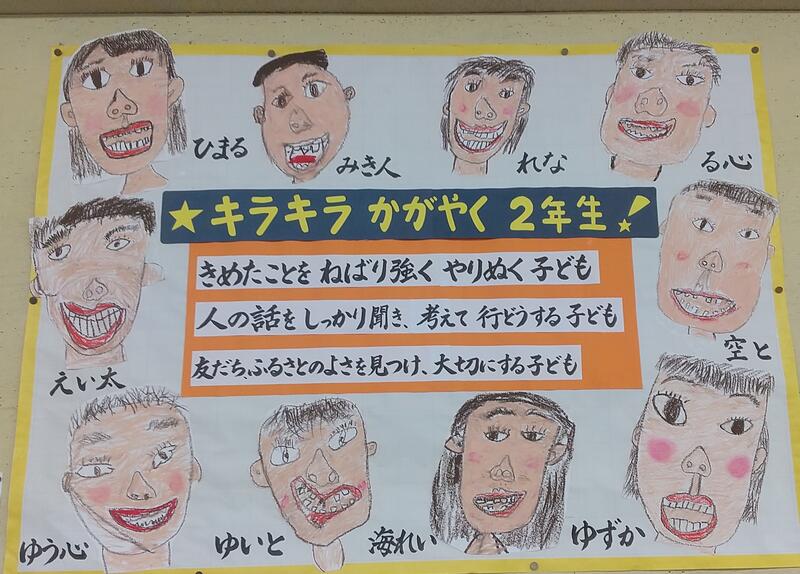 ひまる
みき人
れな
る心
★キラキラ かがやく 2年生!
きめたことを ねばり強く やりぬく 子ども
人の話を しっかり聞き、考えて 行どうする 子ども
友だち、ふるさとのよさを見つけ、大切にする子ども
えい太
空と
ゆう心
ゆいと
海れい
ゆずか